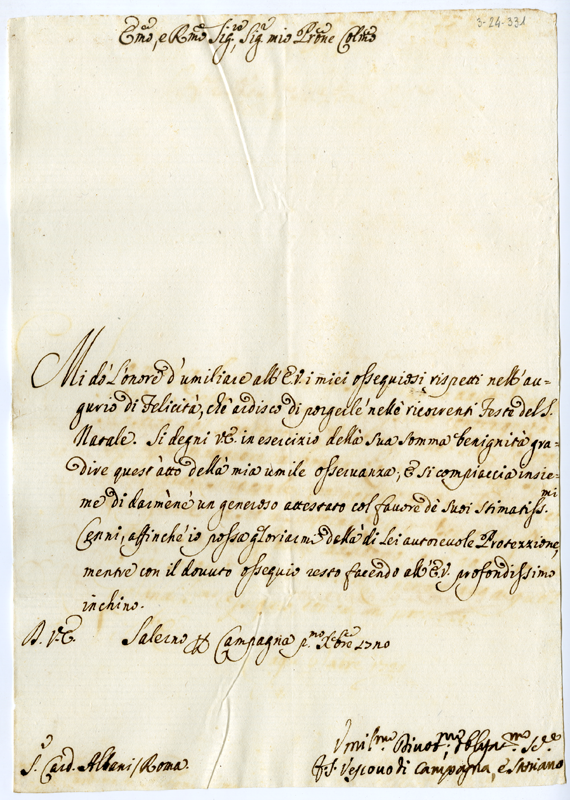 3-24-331
Emo, e Rmo Sigre, Sigr mio Prone Colmo
Mi dò L'onore d'umiliare all' E.V. i miei ossequiosi rispetti nell' au=
gurio di Felicità, chè ardisco di porgerle nellè ricorrenti Feste del S.
Natale. Si degni V.E. in esercizio dellà Sua somma benignità gra=
dire quest'atto dellà mia umile osservanza, è si compiaccia insie=
me di darmenè un generoso attestato col favore dè Suoi Stimatiss.mi
Cenni, affinchè io possa gloriarmi dellà di Lei autorevole Protezzione,
mentre con il dovuto ossequio resto facendo all' E.V. profondissimo
inchino.
D. V.E. Salerno Campagna p.mo Xbre
Umil.mo Divot.mo Oblig.mo
S. Card. Albani / Roma. Vescovo di Campagna, è Satriano